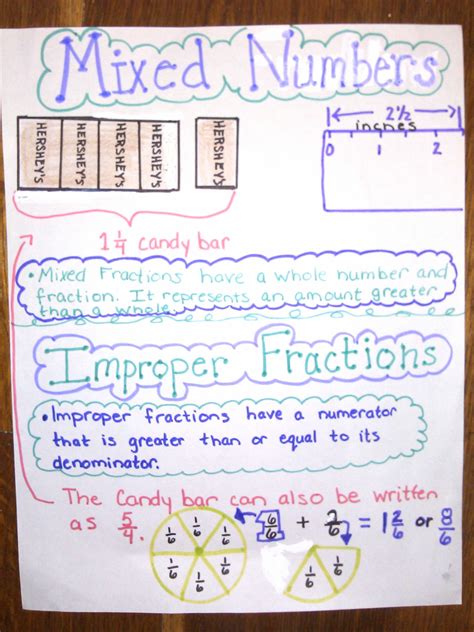 Mixed Numbers
HERSHEY'S HERSHEY'S HERSHEY'S HERSHEY'S HERSHEY'S
2½
inches
0 1 2
1 1/4 candy bar
• Mixed Fractions have a whole number and
fraction. It represents an amount greater
than a whole.
Improper Fractions
• Improper fractions have a numerator
that is greater than or equal to its
denominator.
The Candy bar can also be written
as 5/4.
1/6 1/6 1/6 1/6 1/6 1/6
6/6 + 2/6 = 1 2/6 or 8/6
1/6 1/6